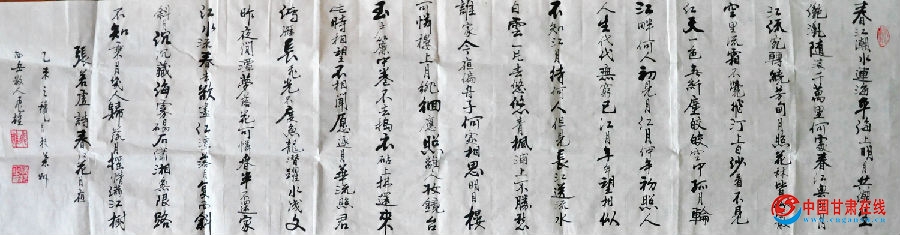 春江潮水連海平海上明月共潮生
灩灩隨波千萬里何處春江無月明
江流宛轉繞芳甸月照花林皆似霰
空里流霜不覺飛汀上白沙看不見
江天一色無纖塵皎皎空中孤月輪
江畔何人初見月江月何年初照人
人生代代無窮已江月年年望相似
不知江月待何人但見長江送流水
白雲一片去悠悠青楓浦上不勝愁
誰家今夜扁舟子何處相思明月樓
可憐樓上月徘徊應照離人妝鏡台
玉戶簾中卷不去搗衣砧上拂還來
此時相望不相聞願逐月華流照君
鴻雁長飛光不度魚龍潛躍水成文
昨夜閑潭夢落花可憐春半不還家
江水流春去欲盡江潭落月復西斜
斜月沉沉藏海霧碣石瀟湘無限路
不知乘月幾人歸落月搖情滿江樹
張若虛詩春江花月夜
乙未
中国甘肃在线
www.cngansu.cn